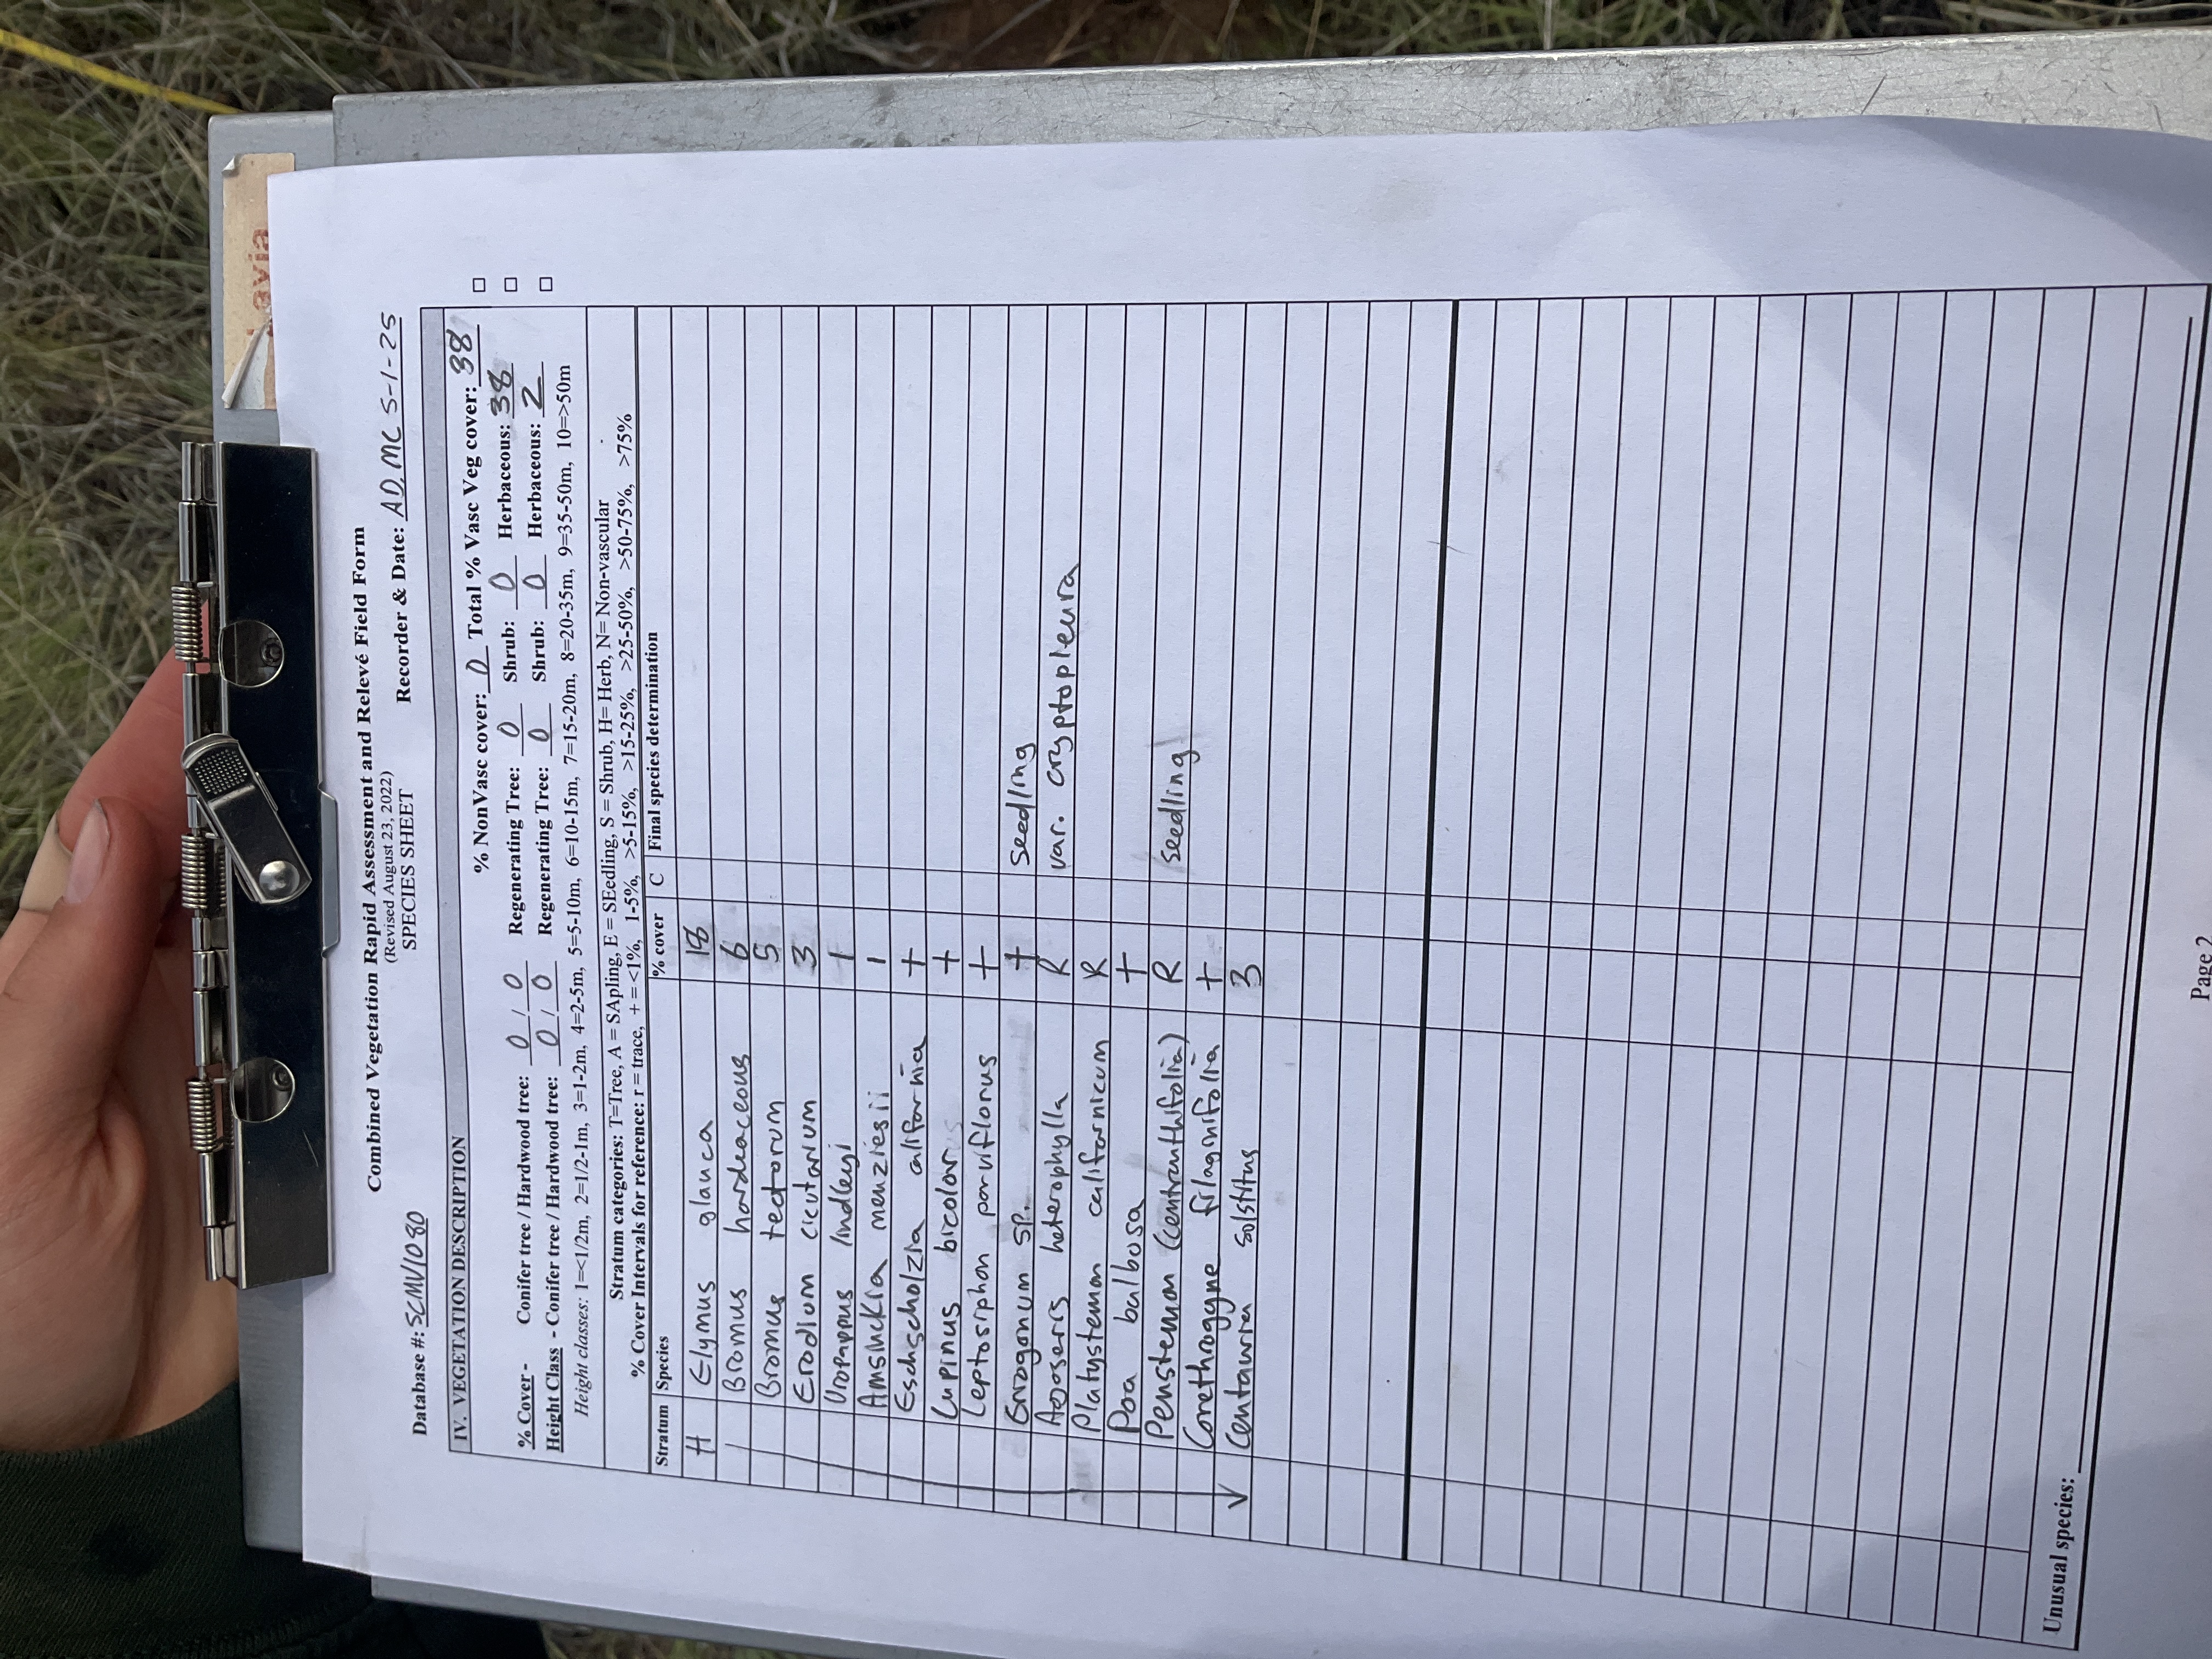 Combined Vegetation Rapid Assessment and Relevé Field Form
(Revised August 23, 2022)
SPECIES SHEET
Database #: SCMV1080 Recorder & Date: AD, MC 5-1-25
IV. VEGETATION DESCRIPTION
% NonVasc cover: 0 Total % Vasc Veg cover: 38
% Cover - Conifer tree / Hardwood tree: 0 / 0 Regenerating Tree: 0 Shrub: 0 Herbaceous: 38
Height Class - Conifer tree / Hardwood tree: 0 / 0 Regenerating Tree: 0 Shrub: 0 Herbaceous: 2
Height classes: 1=<1/2m, 2=1/2-1m, 3=1-2m, 4=2-5m, 5=5-10m, 6=10-15m, 7=15-20m, 8=20-35m, 9=35-50m, 10=>50m
Stratum categories: T=Tree, A = SApling, E = SEedling, S = Shrub, H= Herb, N= Non-vascular
% Cover Intervals for reference: r = trace, + = <1%, 1-5%, >5-15%, >15-25%, >25-50%, >50-75%, >75%
Stratum Species % cover C Final species determination
H Elymus glauca 18
Bromus hordeaceous 6
Bromus tectorum 5
Erodium cicutarium 3
Uropappus lindleyi 1
Amsinckia menziesii 1
Eschscholzia california +
Lupinus bicolor +
Leptosiphon parviflorus +
Eriogonum sp. + seedling
Agoseris heterophylla R var. cryptopleura
Platystemon californicum R
Poa bulbosa +
Penstemon (centranthifolia) R seedling
Corethrogyne filaginifolia +
Centauria solstitus 3
Unusual species:
Page 2